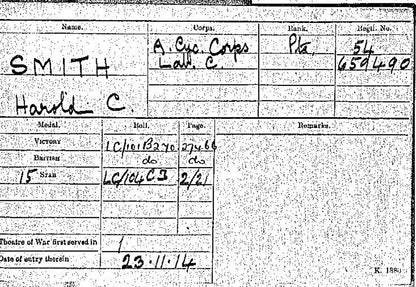 Name. Corps. Rank. Regtl. No.
SMITH A. Cyc. Corps Pte. 54
Lab. C. 659490
Harold C.
Medal. Roll. Page. Remarks.
Victory LC/101B270 27466
British do do
15 Star LC/104C3 2/21
Theatre of War first served in 1
Date of entry therein 23.11.14
K. 1380